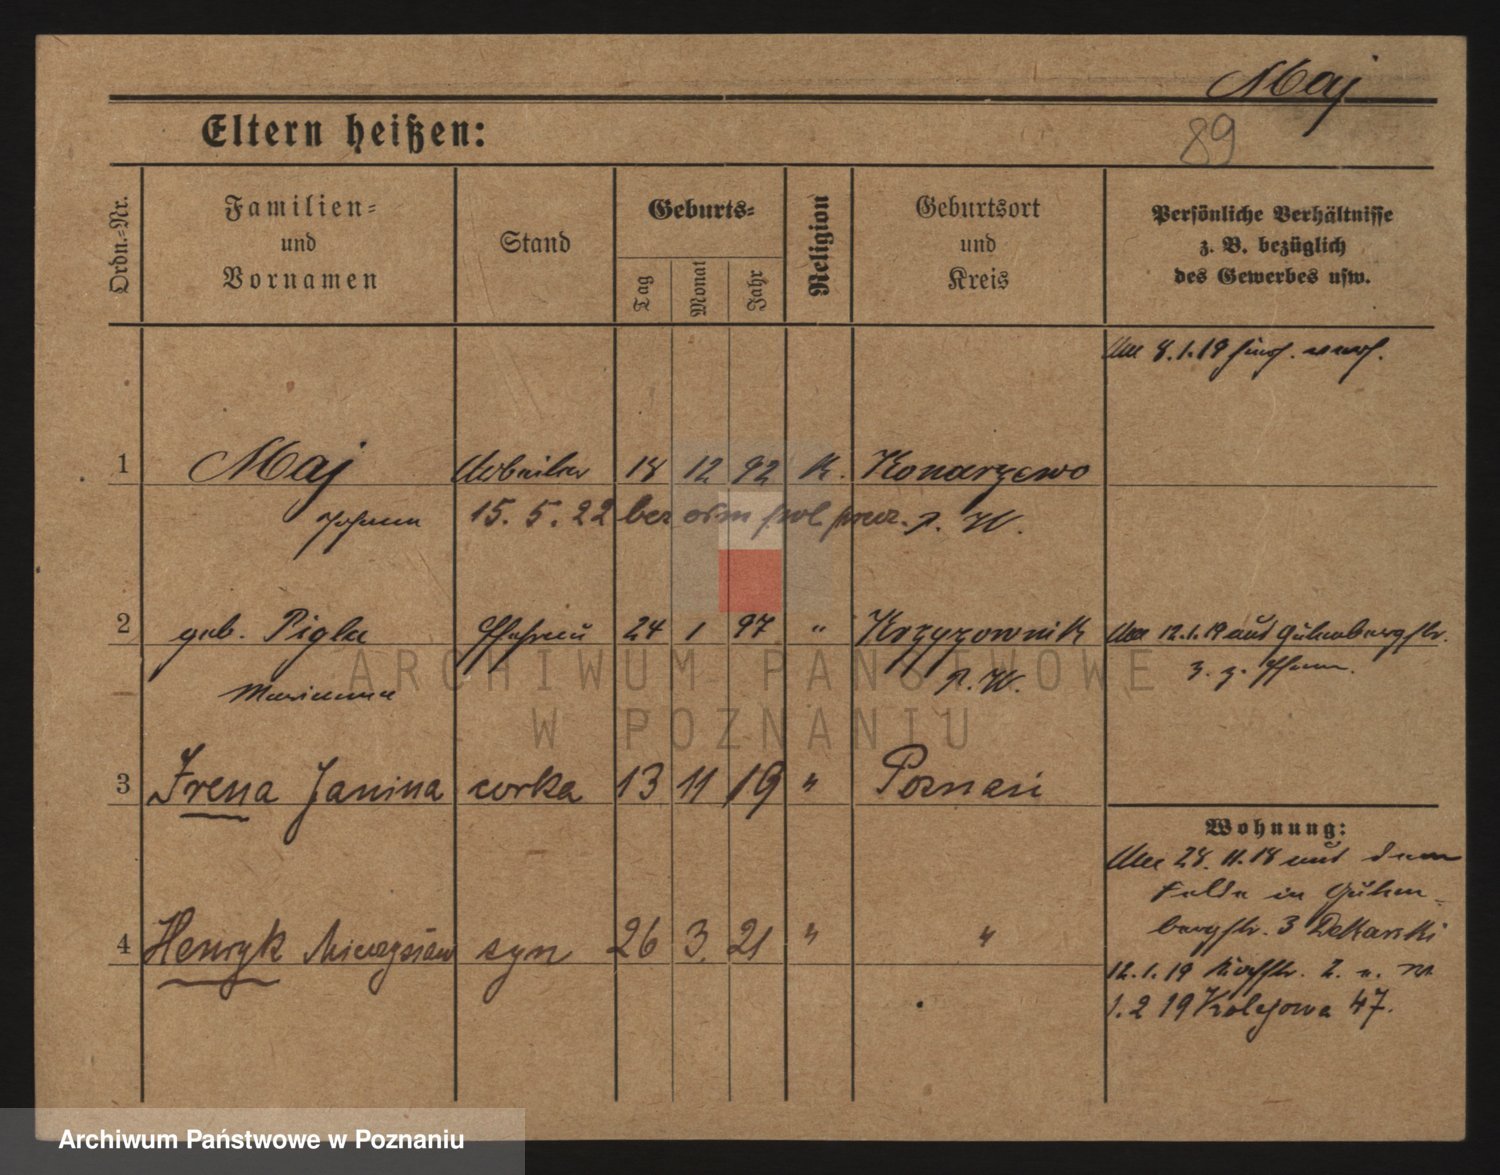 Maj
89
Eltern heißen:
Ordn.-Nr.
Familien- und Vornamen
Stand
Geburts-
Tag
Monat
Jahr
Religion
Geburtsort und Kreis
Persönliche Verhältnisse z. B. bezüglich des Gewerbes usw.
Am 8.1.19
1 Maj Arbeiter 18 12 92 K. Konarzewo
Johann 15. 5. 22 P. W.
2 geb. Pigla Ehefrau 24 1 97 " Krzyzownik Am 12.1.19 aus
Marianna P. W. z. z. Ehem.
ARCHIWUM PAŃSTWOWE
W POZNANIU
3 Irena Janina corka 13 11 19 " Poznań
Wohnung:
Am 28. 11. 18 aus dem
Felde in Guten-
4 Henryk Mieczysław syn 26 3. 21 " "
bergstr. 3
12.1.19
1. 2 19 Kolejowa 47.
Archiwum Państwowe w Poznaniu